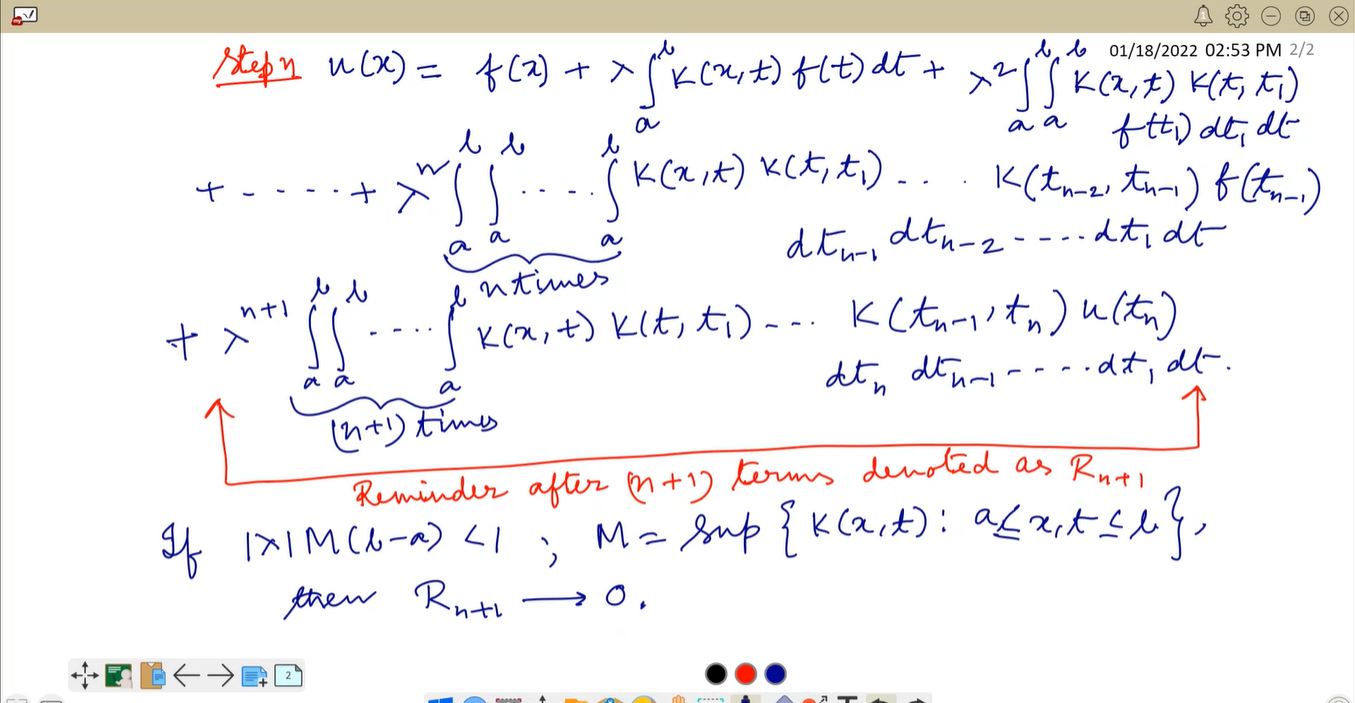 01/18/2022 02:53 PM 2/2
Step n u(x) = f(x) + λ∫ₐᵇ K(x,t) f(t) dt + λ² ∫ₐᵇ ∫ₐᵇ K(x,t) K(t,t₁)
f(t₁) dt₁ dt
+ - - - - - + λⁿ ∫ₐᵇ ∫ₐᵇ ..... ∫ₐᵇ K(x,t) K(t,t₁) - - . . K(tₙ₋₂, tₙ₋₁) f(tₙ₋₁)
dtₙ₋₁ dtₙ₋₂ ----- dt₁ dt
n times
+ λⁿ⁺¹ ∫ₐᵇ ∫ₐᵇ ..... ∫ₐᵇ K(x,t) K(t,t₁) --- .. K(tₙ₋₁, tₙ) u(tₙ)
dtₙ dtₙ₋₁ ----- dt₁ dt.
(n+1) times
Reminder after (n+1) terms denoted as Rₙ₊₁
If |λ| M(b-a) < 1 ; M = Sup { K(x,t) : a ≤ x,t ≤ b },
then Rₙ₊₁ ⟶ 0.
2